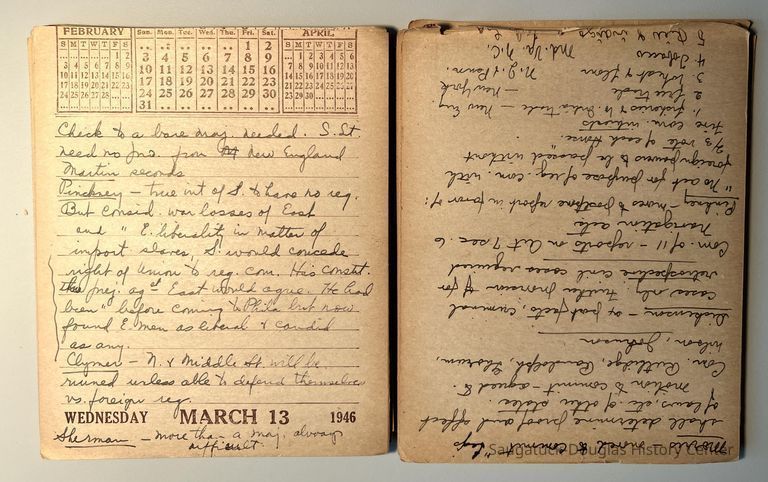 FEBRUARY
S M T W T F S
1 2
3 4 5 6 7 8 9
10 11 12 13 14 15 16
17 18 19 20 21 22 23
24 25 26 27 28
Sun. Mon. Tue. Wed. Thu. Fri. Sat.
1 2
3 4 5 6 7 8 9
10 11 12 13 14 15 16
17 18 19 20 21 22 23
24 25 26 27 28 29 30
31
APRIL
S M T W T F S
1 2 3 4 5 6
7 8 9 10 11 12 13
14 15 16 17 18 19 20
21 22 23 24 25 26 27
28 29 30
Check to a bare maj. needed. S. St.
need no pro. from New England
Martin seconds
Pinckney - true int of S. to have no reg.
But consid. war losses of East
and " E. liberality in matter of
import slaves, S. would concede
right of Union to reg. com. His const.
prej. ag st East would agree. He had
been " before coming to Phila but now
found E. men as liberal & candid
as any.
Clymer - N. & Middle St. will be
ruined unless able to defend themselves
vs. foreign reg.
WEDNESDAY MARCH 13 1946
Sherman - more than a maj. always
difficult.
Morris - moved to commit "Legis
shall determine proof and effect
of laws etc. of other states.
Motion to commit - agreed to.
Com. Rutledge, Randolph, Gorham,
Wilson, Johnson
Dickenson - ex post facto, criminal
cases only. Further provision for
retrospective civil cases required
Com. of 11 - reports on Art 7 sec. 6
Navigation acts
Pinkney - moves to postpone report in favor of:
"No act for purpose of reg. com. with
foreign powers to be passed without
2/3 vote of each House.
Five com. interests
1. fisheries & W. India trade - New Eng.
2. free trade - New York
3. Wheat & flour N.J. & Penn.
4 Tobacco Md. Va. N.C.
5 Rice & indigo
Saugatuck-Douglas History Center